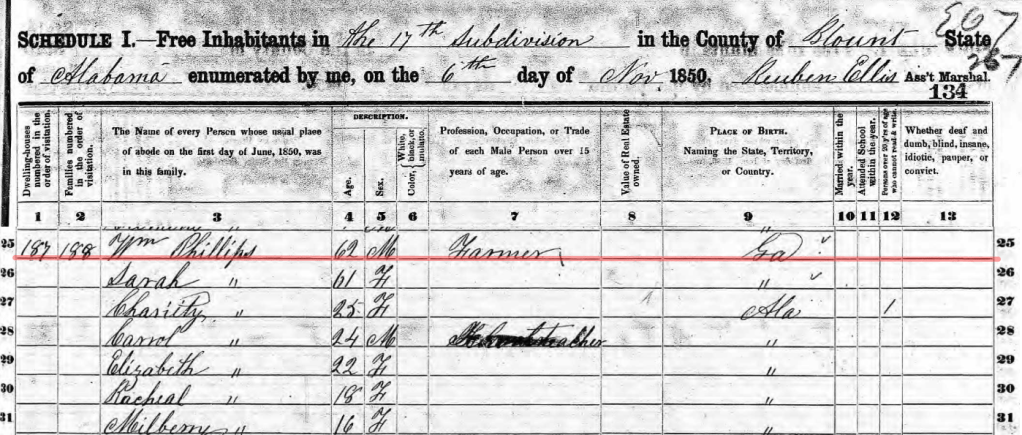 267
SCHEDULE I.—Free Inhabitants in the 17th Subdivision in the County of Blount State
of Alabama enumerated by me, on the 6th day of Nov 1850, Reuben Ellis Ass't Marshal.
134
Dwelling-houses numbered in the order of visitation.
Families numbered in the order of visitation.
The Name of every Person whose usual place
of abode on the first day of June, 1850, was
in this family.
DESCRIPTION.
Age.
Sex.
Color, White, black, or mulatto.
Profession, Occupation, or Trade
of each Male Person over 15
years of age.
Value of Real Estate owned.
PLACE OF BIRTH.
Naming the State, Territory,
or Country.
Married within the year.
Attended School within the year.
Persons over 20 y'rs of age who cannot read & write.
Whether deaf and
dumb, blind, insane,
idiotic, pauper, or
convict.
1 2 3 4 5 6 7 8 9 10 11 12 13
25 187 188 Wm Phillips 62 M Farmer Ga 25
26 Sarah " 61 F " 26
27 Charity " 25 F Ala 1 27
28 Carrol " 24 M teacher " 28
29 Elizabeth " 22 F " 29
30 Racheal " 18 F " 30
31 Milberry " 16 F " 31